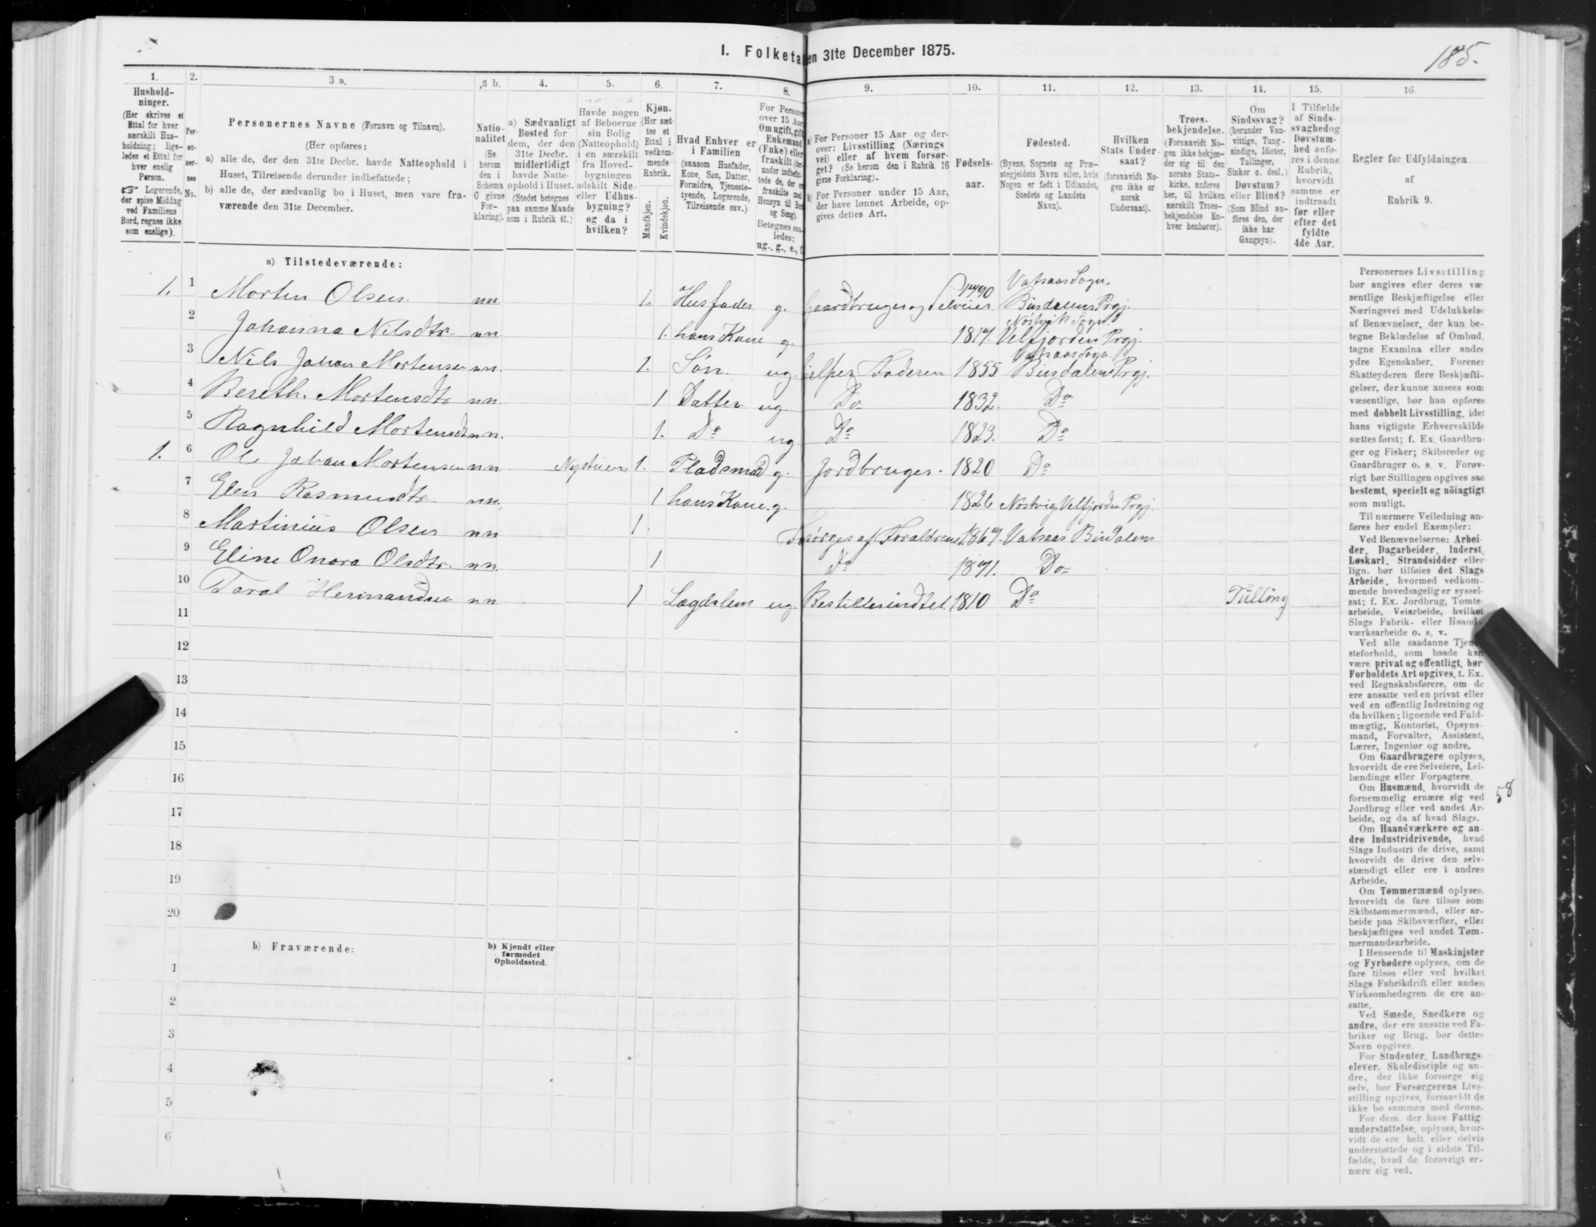 185.
I. Folketa en 31te December 1875.
1. 2. 3 a. 3 b. 4. 5. 6. 7. 8. 9. 10. 11. 12. 13. 14. 15. 16.
Hushold-
ninger.
(Her skrives et
Ettal for hver
særskilt Hus-
holdning; lige-
ledes et Ettal for
hver enslig
Person.
☞ Logerende,
der spise Middag
ved Familiens
Bord, regnes ikke
som enslige).
Per-
so-
ner-
nes
No.
Personernes Navne (Fornavn og Tilnavn).
(Her opføres:
a) alle de, der den 31te Decbr. havde Natteophold i
Huset, Tilreisende derunder indbefattede;
b) alle de, der sædvanlig bo i Huset, men vare fra-
værende den 31te December.
Natio-
nalitet
(Se
herom
den i
Schema
O givne
For-
klaring).
a) Sædvanligt
Bosted for
dem, der den
31te Decbr.
midlertidigt
havde Natte-
ophold i Huset.
(Stedet betegnes
paa samme Maade
som i Rubrik 11.)
Havde nogen
af Beboerne
sin Bolig
(Natteophold)
i en særskilt
fra Hoved-
bygningen
adskilt Side-
eller Udhus-
bygning?
og da i
hvilken?
Kjøn.
(Her sæt-
tes et
Ettal i
vedkom-
mende
Rubrik.
Mandkjøn.
Kvindekjøn.
Hvad Enhver er
i Familien
(saasom Husfader,
Kone, Søn, Datter,
Forældre, Tjeneste-
tyende, Logerende,
Tilreisende osv.)
For Persone
over 15 Aar
Om ugift, gift
Enkemand
(Enke) elle
fraskilt
Betegnes saa-
ledes:
ug., g., e., f
a) For Personer 15 Aar og der-
over: Livsstilling (Nærings
vei) eller af hvem forsør-
get? (Se herom den i Rubrik 16
givne Forklaring).
b) For Personer under 15 Aar,
der have lønnet Arbeide, op-
gives dettes Art.
Fødsels-
aar.
Fødested.
(Byens, Sognets og Præ-
stegjeldets Navn eller, hvis
Nogen er født i Udlandet,
Stedets og Landets
Navn).
Hvilken
Stats Under-
saat?
(forsaavidt No-
gen ikke er
norsk
Undersaat).
Troes-
bekjendelse.
(Forsaavidt No-
gen ikke bekjen-
der sig til den
norske Stats-
kirke, anføres
her, til hvilken
særskilt Troes-
bekjendelse En-
hver henhører).
Om
Sindssvag?
(herunder Van-
vittige, Tung-
sindige, Idioter,
Tullinger,
Sinker o. desl.)
Døvstum?
eller Blind?
(Som Blind an-
føres den, der
ikke har
Gangsyn).
I Tilfælde
af Sinds-
svaghedog
Døvstum-
hed anfø-
res i denne
Rubrik,
hvorvidt
samme er
indtraadt
før eller
efter det
fyldte
4de Aar.
Regler for Udfyldningen
af
Rubrik 9.
a) Tilstedeværende:
1. 1 Morten Olsen nn. 1. Husfader g. Gaardbruger og Selveier 1790 Vatsaas Sogn. Bindalens Prgj.
2 Johanna Nilsdtr nn. 1. hans Kone g. 1817. Nøstvik Sogn. Velfjorden Prgj.
3 Nils Johan Mortensen nn. 1. Søn ug. hjelper Faderen 1855 Vatsaas Sogn. Bindalens Prgj.
4 Bereth. Mortensdtr nn. 1 Datter ug. Do 1832. Do
5 Ragnhild Mortensdtr nn. 1. Do ug Do 1823. Do
1. 6 Ole Johan Mortensen nn. Nystuen 1. Pladsmad g. Jordbruger. 1820 Do
7 Elen Rasmusdtr nn. 1 hans Kone g. 1826 Nøstvig Velfjorden Prgj.
8 Martinius Olsen nn 1 Forsørges af Foraldrene 1867. Vatsaas Bindalen
9 Eline Onora Olsdtr. nn. 1 Do 1871. Do
10 Taral Hermandsen nn. 1 Lægdslem ug. 1810 Do Tulling
11
12
13
14
15
16
17
18
19
20
b) Fraværende:
b) Kjendt eller
formodet
Opholdssted.
1
2
3
4
5
6
Personernes Livsstilling
bør angives efter deres væ-
sentlige Beskjæftigelse eller
Næringsvei med Udelukkelse
af Benævnelser, der kun be-
tegne Beklædelse af Ombud,
tagne Examina eller andre
ydre Egenskaber. Forener
Skatteyderen flere Beskjæfti-
gelser, der kunne ansees som
væsentlige, bør han opføres
med dobbelt Livsstilling, idet
hans vigtigste Erhvervskilde
sættes først; f. Ex. Gaardbru-
ger og Fisker; Skibsreder og
Gaardbruger o. s. v. Forøv-
rigt bør Stillingen opgives saa
bestemt, specielt og nøiagtigt
som muligt.
Til nærmere Veiledning an-
føres her endel Exempler:
Ved Benævnelserne: Arbei-
der, Dagarbeider, Inderst,
Løskarl, Strandsidder eller
lign. bør tilføies det Slags
Arbeide, hvormed vedkom-
mende hovedsagelig er syssel-
sat; f. Ex. Jordbrug, Tomte-
arbeide, Veiarbeide, hvilket
Slags Fabrik- eller Haand-
værksarbeide o. s. v.
Ved alle saadanne Tjene-
steforhold, som baade kan
være privat og offentligt, bør
Forholdets Art opgives, t. Ex.
ved Regnskabsførere, om de
ere ansatte ved en privat eller
ved en offentlig Indretning og
da hvilken; lignende ved Fuld-
mægtig, Kontorist, Opsyns-
mand, Forvalter, Assistent,
Lærer, Ingeniør og andre.
Om Gaardbrugere oplyses,
hvorvidt de ere Selveiere, Lei-
lændinge eller Forpagtere.
Om Husmænd, hvorvidt de
fornemmelig ernære sig ved
Jordbrug eller ved andet Ar-
beide, og da af hvad Slags.
Om Haandværkere og an-
dre Industridrivende, hvad
Slags Industri de drive, samt
hvorvidt de drive den selv-
stændigt eller ere i andres
Arbeide.
Om Tømmermænd oplyses,
hvorvidt de fare tilsøs som
Skibstømmermænd, eller ar-
beide paa Skibsværfter, eller
beskjæftiges ved andet Tøm-
mermandsarbeide.
I Henseende til Maskinister
og Fyrbødere oplyses, om de
fare tilsøs eller ved hvilket
Slags Fabrikdrift eller anden
Virksomhedsgren de ere an-
satte.
Ved Smede, Snedkere og
andre, der ere ansatte ved Fa-
briker og Brug, bør dettes
Navn opgives.
For Studenter, Landbrugs-
elever, Skoledisciple og an-
dre, der ikke forsørge sig
selv, bør Forsørgerens Livs-
stilling opgives, forsaavidt de
ikke bo sammen med denne.
For dem, der have Fattig-
understøttelse, oplyses, hvor-
vidt de ere helt eller delvis
understøttede og i sidste Til-
fælde, hvad de forøvrigt er-
nære sig ved.
58